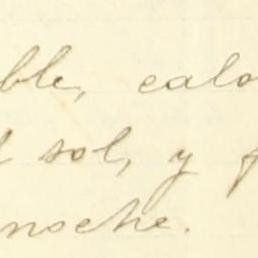 ble, calo
l sol, y f
noche.